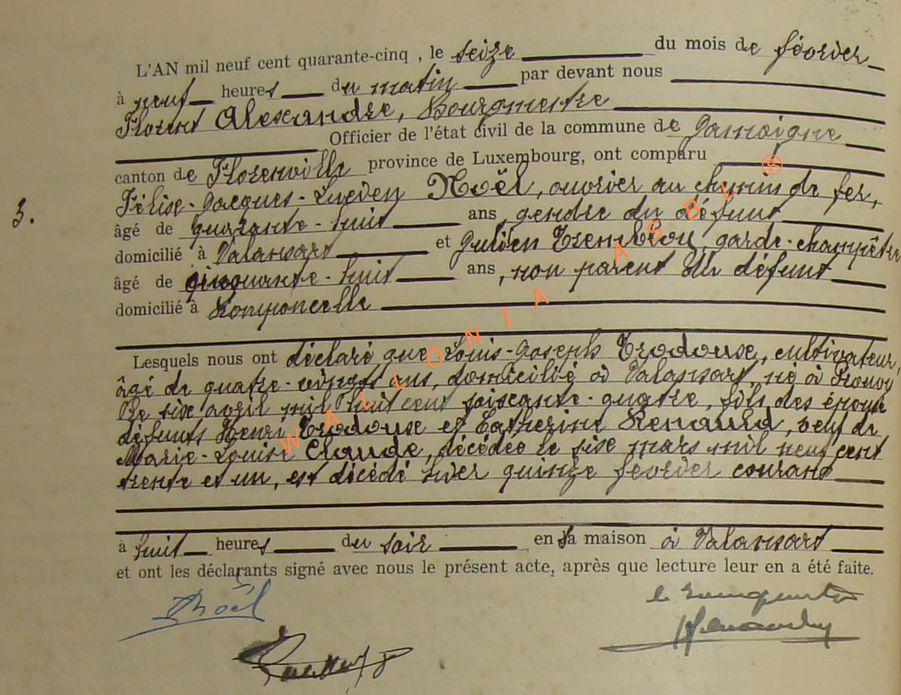 L'AN mil neuf cent quarante-cinq , le seize du mois de février
à neuf heures du matin par devant nous
Florent Alexandre, Bourgmestre
Officier de l'état civil de la commune de Jamoigne
canton de Florenville province de Luxembourg, ont comparu
3. Félix-Jacques-Lucien Noël, ouvrier au chemin de fer,
âgé de quarante-huit ans, gendre du défunt
domicilié à Valansart et Julien garde-champêtre
âgé de cinquante-huit ans, non parent du défunt
domicilié à Romponcelle
Lesquels nous ont déclaré que Louis-Joseph Trodouse, cultivateur,
âgé de quatre-vingts ans, domicilié à Valansart, né à Prouvy
le six avril mil huit cent soixante-quatre, fils des époux
défunts Henri Trodouse et Catherine Renauld, veuf de
Marie-Louise Claude, décédée le six mars mil neuf cent
trente et un, est décédé hier quinze février courant
à huit heures du soir en sa maison à Valansart
et ont les déclarants signé avec nous le présent acte, après que lecture leur en a été faite.
Noël
WALLONIA ASBL ®